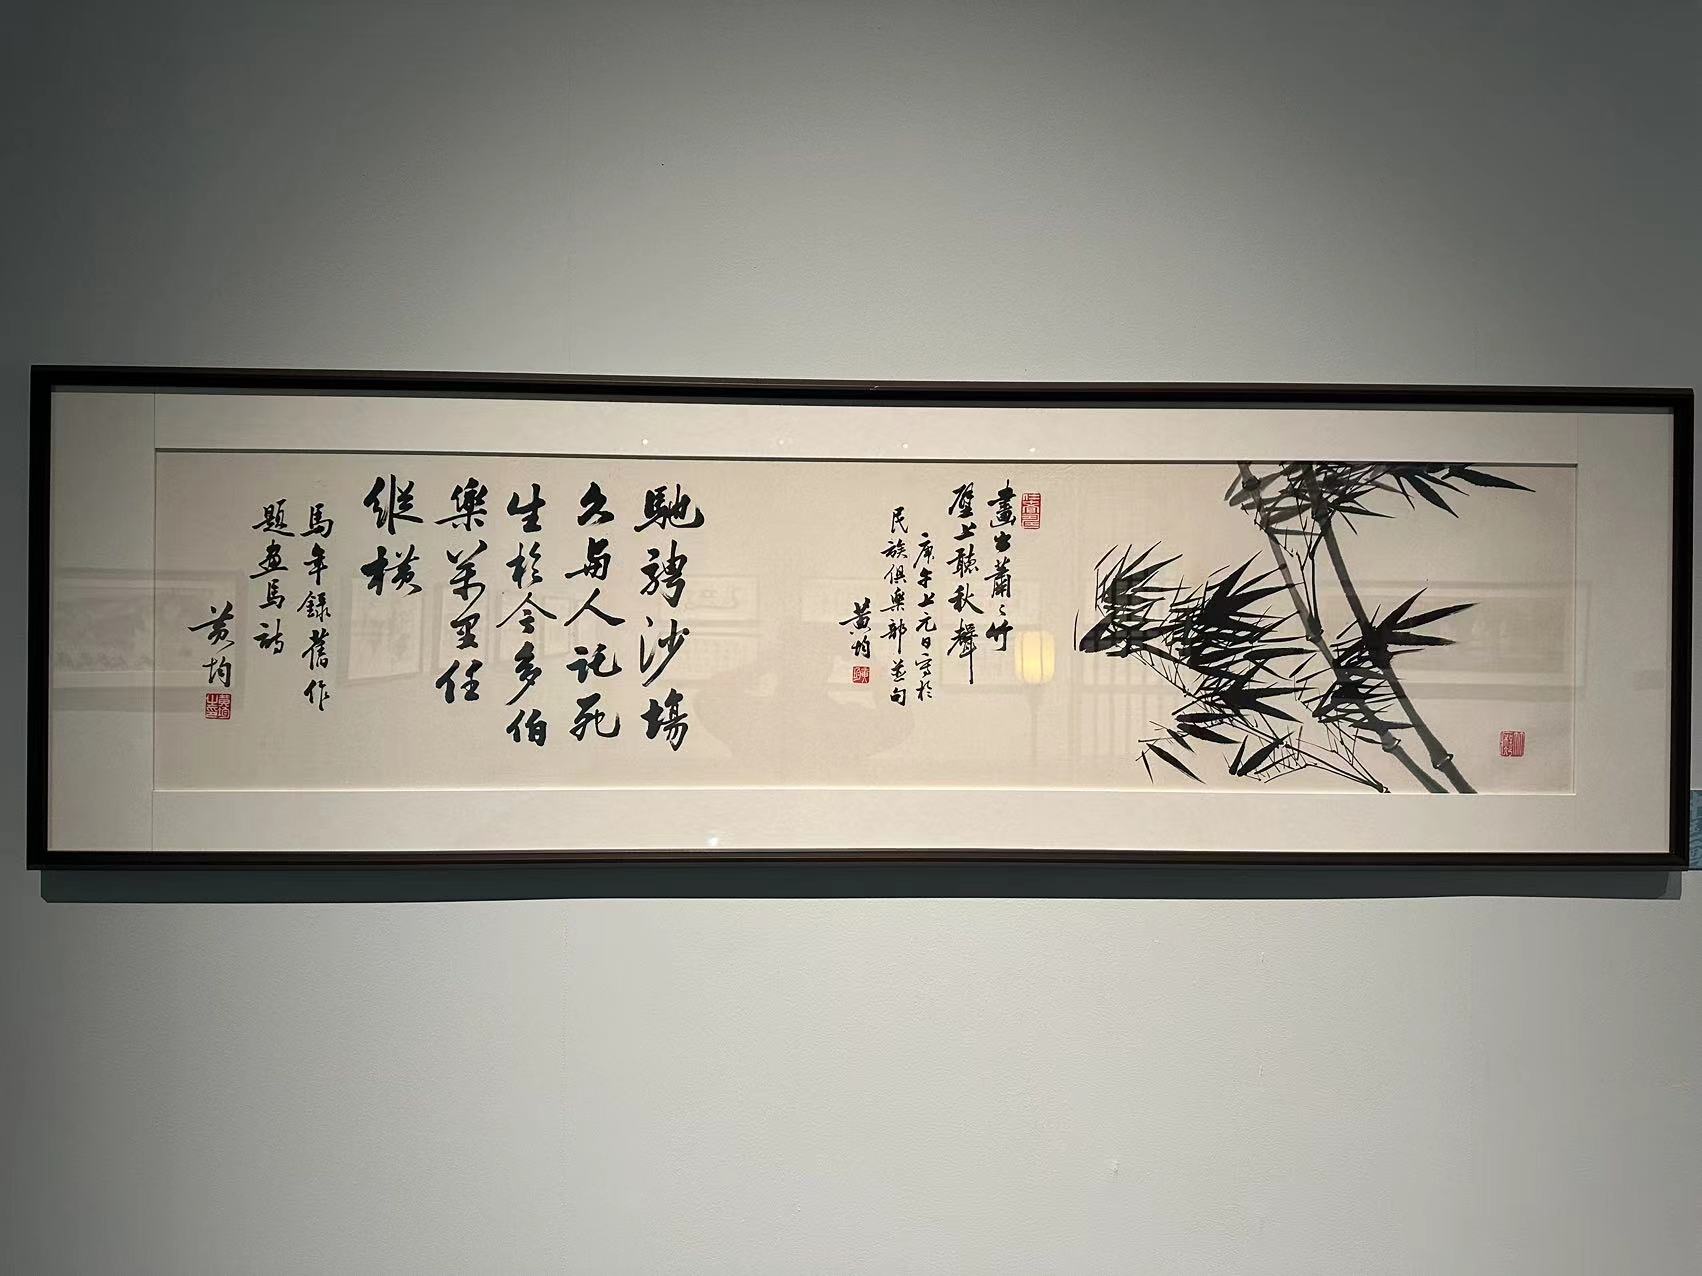 畫出蕭〻竹
壁上聽秋聲
庚午上元日寫於
民族俱樂部並句
黃均
馳騁沙場
久與人託死
生於今多伯
樂萬里任
縱橫
馬年錄舊作
題畫馬詩
黃均